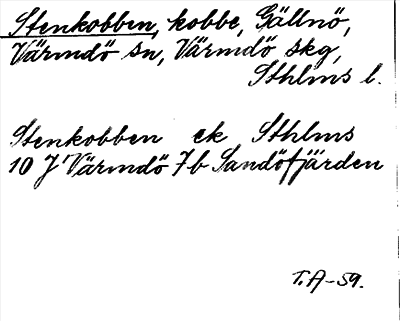 Stenkobben, kobbe, Gällnö,
Värmdö sn, Värmdö skg,
Sthlms l.
Stenkobben ek Sthlms
10 J Värmdö 7b Sandöfjärden
T.A-59.